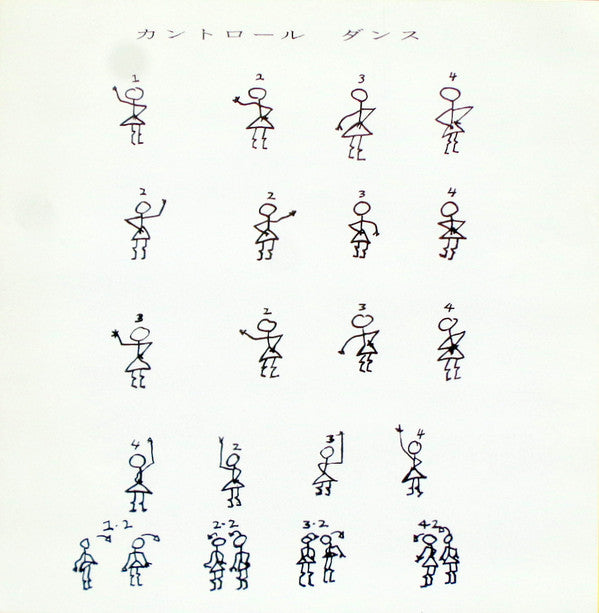 カントロール ダンス
1 2 3 4
2 2 3 4
3 2 3 4
4 2 3 4
1・2 2・2 3・2 4・2